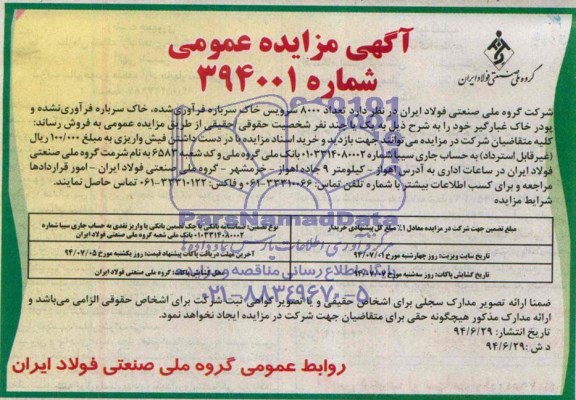 آگهی مزایده عمومی
شماره ۳۹۴۰۰۱
گروه ملی صنعتی فولاد ایران
شرکت گروه ملی صنعتی فولاد ایران در نظر دارد تعداد ۸۰۰۰ سرویس خاک سرباره فرآوری‌شده، خاک سرباره فرآوری‌نشده و
پودر خاک غبارگیر خود را به شرح ذیل به یک یا چند نفر شخصیت حقوقی/حقیقی از طریق مزایده عمومی به فروش رساند:
کلیه متقاضیان شرکت در مزایده می‌توانند جهت بازدید و خرید اسناد مزایده با در دست داشتن فیش واریزی به مبلغ ۱۰۰/۰۰۰ ریال
(غیرقابل استرداد) به حساب جاری سیبا شماره ۰۱۰۳۳۱۴۰۸۰۰۰۲ بانک ملی گروه ملی و کد شعبه ۶۵۸۳ به نام شرکت گروه ملی صنعتی
فولاد ایران در ساعات اداری به آدرس اهواز - کیلومتر ۹ جاده اهواز - خرمشهر - گروه ملی صنعتی فولاد ایران - امور قراردادها
مراجعه و برای کسب اطلاعات بیشتر با شماره تلفن تماس: ۳۳۳۱۰۰۶۶-۰۶۱ و فاکس: ۳۳۳۱۰۱۲۲-۰۶۱ تماس حاصل نمایند.
شرایط مزایده
مبلغ تضمین جهت شرکت در مزایده معادل ۱٪ مبلغ کل پیشنهادی خریدار
نوع تضمین: ضمانتنامه بانکی یا چک تضمین بانکی یا واریز نقدی به حساب جاری سیبا شماره
۰۱۰۳۳۱۴۰۸۰۰۰۲ بانک ملی شعبه گروه ملی صنعتی فولاد ایران
تاریخ سایت ویزیت: روز چهارشنبه مورخ ۹۴/۰۷/۰۱
آخرین مهلت دریافت پاکات پیشنهاد قیمت: روز یکشنبه مورخ ۹۴/۰۷/۰۵
تاریخ گشایش پاکات: روز سه‌شنبه مورخ
پاکات: گروه ملی صنعتی فولاد ایران
ضمنا ارائه تصویر مدارک سجلی برای اشخاص حقیقی و یا تصویر گواهی ثبت شرکت برای اشخاص حقوقی الزامی می‌باشد و
ارائه مدارک مذکور هیچگونه حقی برای متقاضیان جهت شرکت در مزایده ایجاد نخواهد نمود.
تاریخ انتشار: ۹۴/۶/۲۹
د ش: ۹۴/۶/۲۹
روابط عمومی گروه ملی صنعتی فولاد ایران
ParsNamadData
پایگاه اطلاع رسانی مناقصه و مزایده
۰۲۱-۸۸۳۴۹۶۷۰-۵